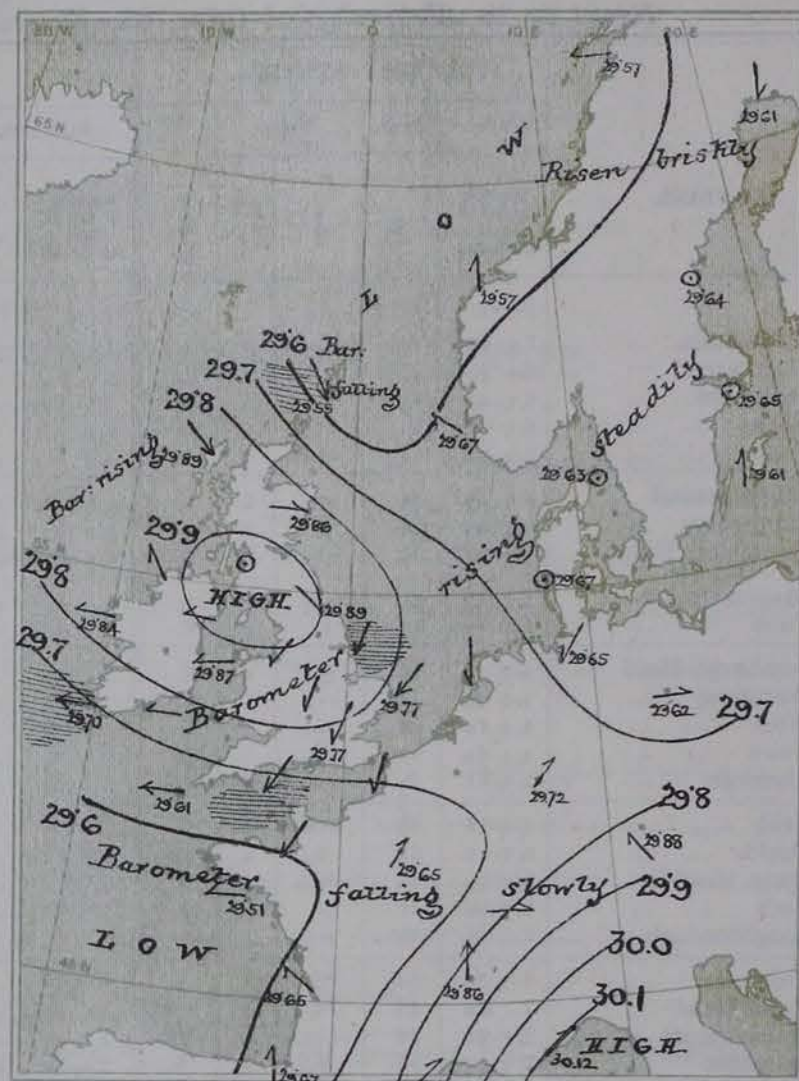 10 W
0
10 E
20 E
29.57
29.61
65 N
W
Risen briskly
O
29.57
29.64
L
29.6
Bar:
falling
29.7
29.55
29.8
steadily
29.65
29.67
29.89
Bar: rising
29.63
29.61
29.9
29.86
rising
29.67
29.8
HIGH
29.89
29.84
29.65
29.7
29.87
Barometer
29.77
29.62
29.7
29.70
29.77
29.72
29.8
29.61
29.6
29.88
Barometer
falling
slowly
29.65
29.9
29.51
LOW
30.0
29.65
29.86
30.1
HIGH
30.12